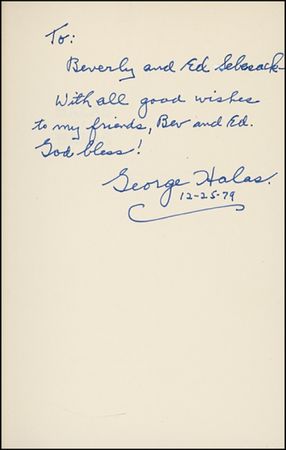 To:
Beverly and Ed Sebsack-
With all good wishes
to my friends, Bev and Ed.
God bless!
George Halas.
12-25-79